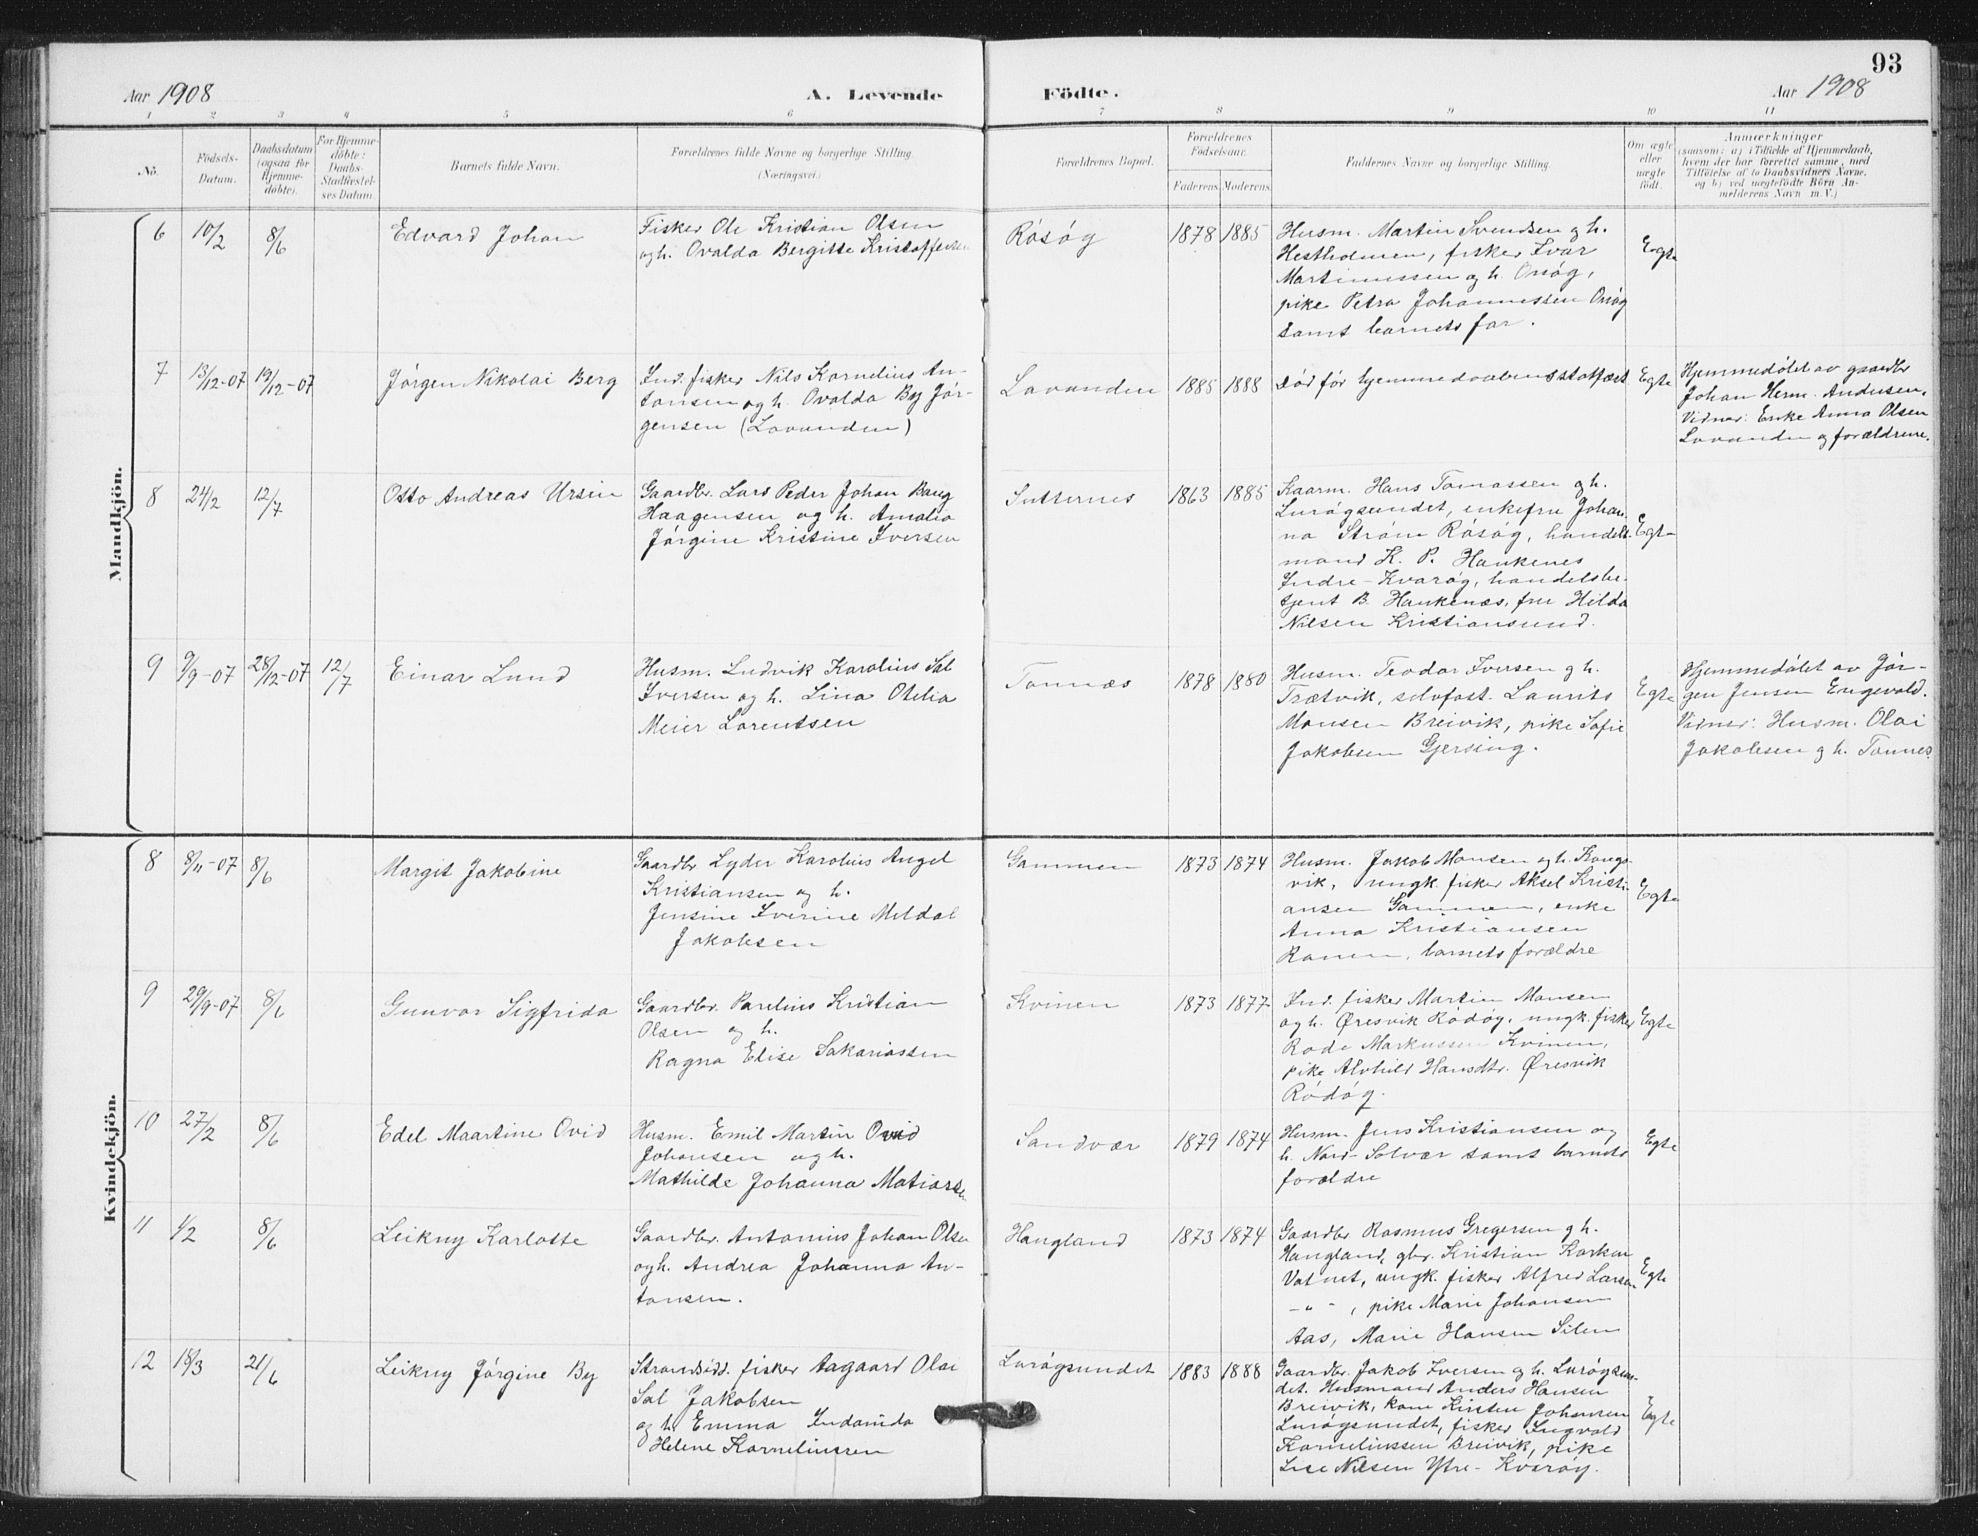 93
Aar 1908
A. Levende
Födte.
Aar 1908
1 2 3 4 5 6 7 8 9 10 11
No.
Födsels-
Datum.
Daabsdatum
(ogsaa for
Hjemme-
döbte).
For Hjemme-
döbte:
Daabs-
Stadfæstel-
ses Datum.
Barnets fulde Navn.
Forældrenes fulde Navne og borgerlige Stilling.
(Næringsvei.)
Forældrenes Bopæl.
Forældrenes
Födselsaar.
Faderens. Moderens.
Faddernes Navne og borgerlige Stilling.
Om ægte
eller
uægte
födt.
Anmærkninger
(saasom: a) i Tilfælde af Hjemmedaab,
hvem der har forrettet samme, med
Tilföielse af to Daabsvidners Navne,
og b) ved uægtefödte Börn An-
melderens Navn m.V.)
Mandkjön.
6 10/2 8/6 Edvard Johan
Fisker Ole Kristian Olsen
og h. Ovalda Bergitte Kristoffersen
Rósøg 1878 1885
Husm. Martin Svendsen og h.
Hestholmen, fisker Ivar
Martinussen og h. Onøg,
pike Petra Johannessen Onøg
samt barnets far.
Egte
7 13/12-07 19/12-07 Jørgen Nikolai Berg
Ind. fisker Nils Kornelius An-
tonsen og h. Ovalda By Jør-
gensen (Lovunden)
Lovunden 1885 1888
Død før hjemmedaabens stadfæst
Egte
Hjemmedøbt av gaardbr
Johan Herm. Andersen.
Vidner: Enke Anna Olsen
Lovunden og forældrene.
8 24/2 12/7 Otto Andreas Ursin
Gaardbr. Lars Peder Johan Bang
Haagensen og h. Amalia
Jørgine Kristine Iversen
Sutternes 1863 1885
Kaarm. Hans Tomassen og h.
Lurøgsundet, enkefru Johan-
na Strøm Røsøg, handels-
mand K. P. Haukenes
Indre-Kvarøg, handelsbe-
tjent B. Haukenæs, fru Hilda
Nilsen Kristiansund.
Egte
9 9/9-07 28/12-07 12/7 Einar Lund
Husm. Ludvik Karolius Sal
Iversen og h. Lina Otelia
Meier Lorentsen
Tonnæs 1878 1880
Husm. Teodor Iversen og h.
Trætvik, selvfost. Laurits
Monsen Breivik, pike Sofie
Jakobsen Gjersing.
Egte
Hjemmedøbt av Jør-
gen Jensen Engevold.
Vidner: Husm. Olai
Jakobsen og h. Tonnes.
Kvindekjön.
8 8/11-07 8/6 Margit Jakobine
Gaardbr Lyder Karolius Angel
Kristiansen og h.
Jensine Iverine Meldal
Jakobsen
Gammen 1873 1874
Husm. Jakob Monsen og h. Kongs-
vik, ungk. fisker Aksel Kristi-
ansen Gammen, enke
Anna Kristiansen
Ranen, barnets forældre
Egte
9 29/9-07 8/6 Gunvor Sigfrida
Gaardbr. Parelius Kristian
Olsen og h.
Ragna Elise Sakariassen
Kvinen 1873 1877
Ind. fisker Martin Monsen
og h. Øresvik Rödøg, ungk. fisker
Rode Markussen Kvinen,
pike Alvhild Hansdtr. Øresvik
Rödøg.
Egte
10 27/2 8/6 Edel Maartine Ovid
Husm. Emil Martin Ovid
Johansen og h.
Mathilde Johanna Matiassen
Sandvær 1879 1874
Husm. Jens Kristiansen og
h. Nord-Solvær samt barnets
forældre
Egte
11 1/2 8/6 Leikny Karlotte
Gaardbr. Antonius Johan Olsen
og h. Andrea Johanna An-
tonsen.
Haugland 1873 1874
Gaardbr. Rasmus Gregersen og h.
Haugland, gbr. Kristian
Vatnet, ungk. fisker Alfred Larsen
-"-, pike Marie Johansen
Aas, Marie Hansen Silen
Egte
12 18/3 21/6 Leikny Jørgine By
Strandsidd. fisker Aagaard Olai
Sal Jakobsen
og h. Emma Indamida
Helene Korneliussen
Lurøgsundet 1883 1888
Gaardbr. Jakob Iversen og h. Lurøgsun-
det. Husmand Anders Hansen
Breivik, kone Kirsten Johansen
Lurøgsundet, fisker Ingvald
Korneliussen Breivik, pike
Lise Nilsen Ytre-Kvarøy.
Egte